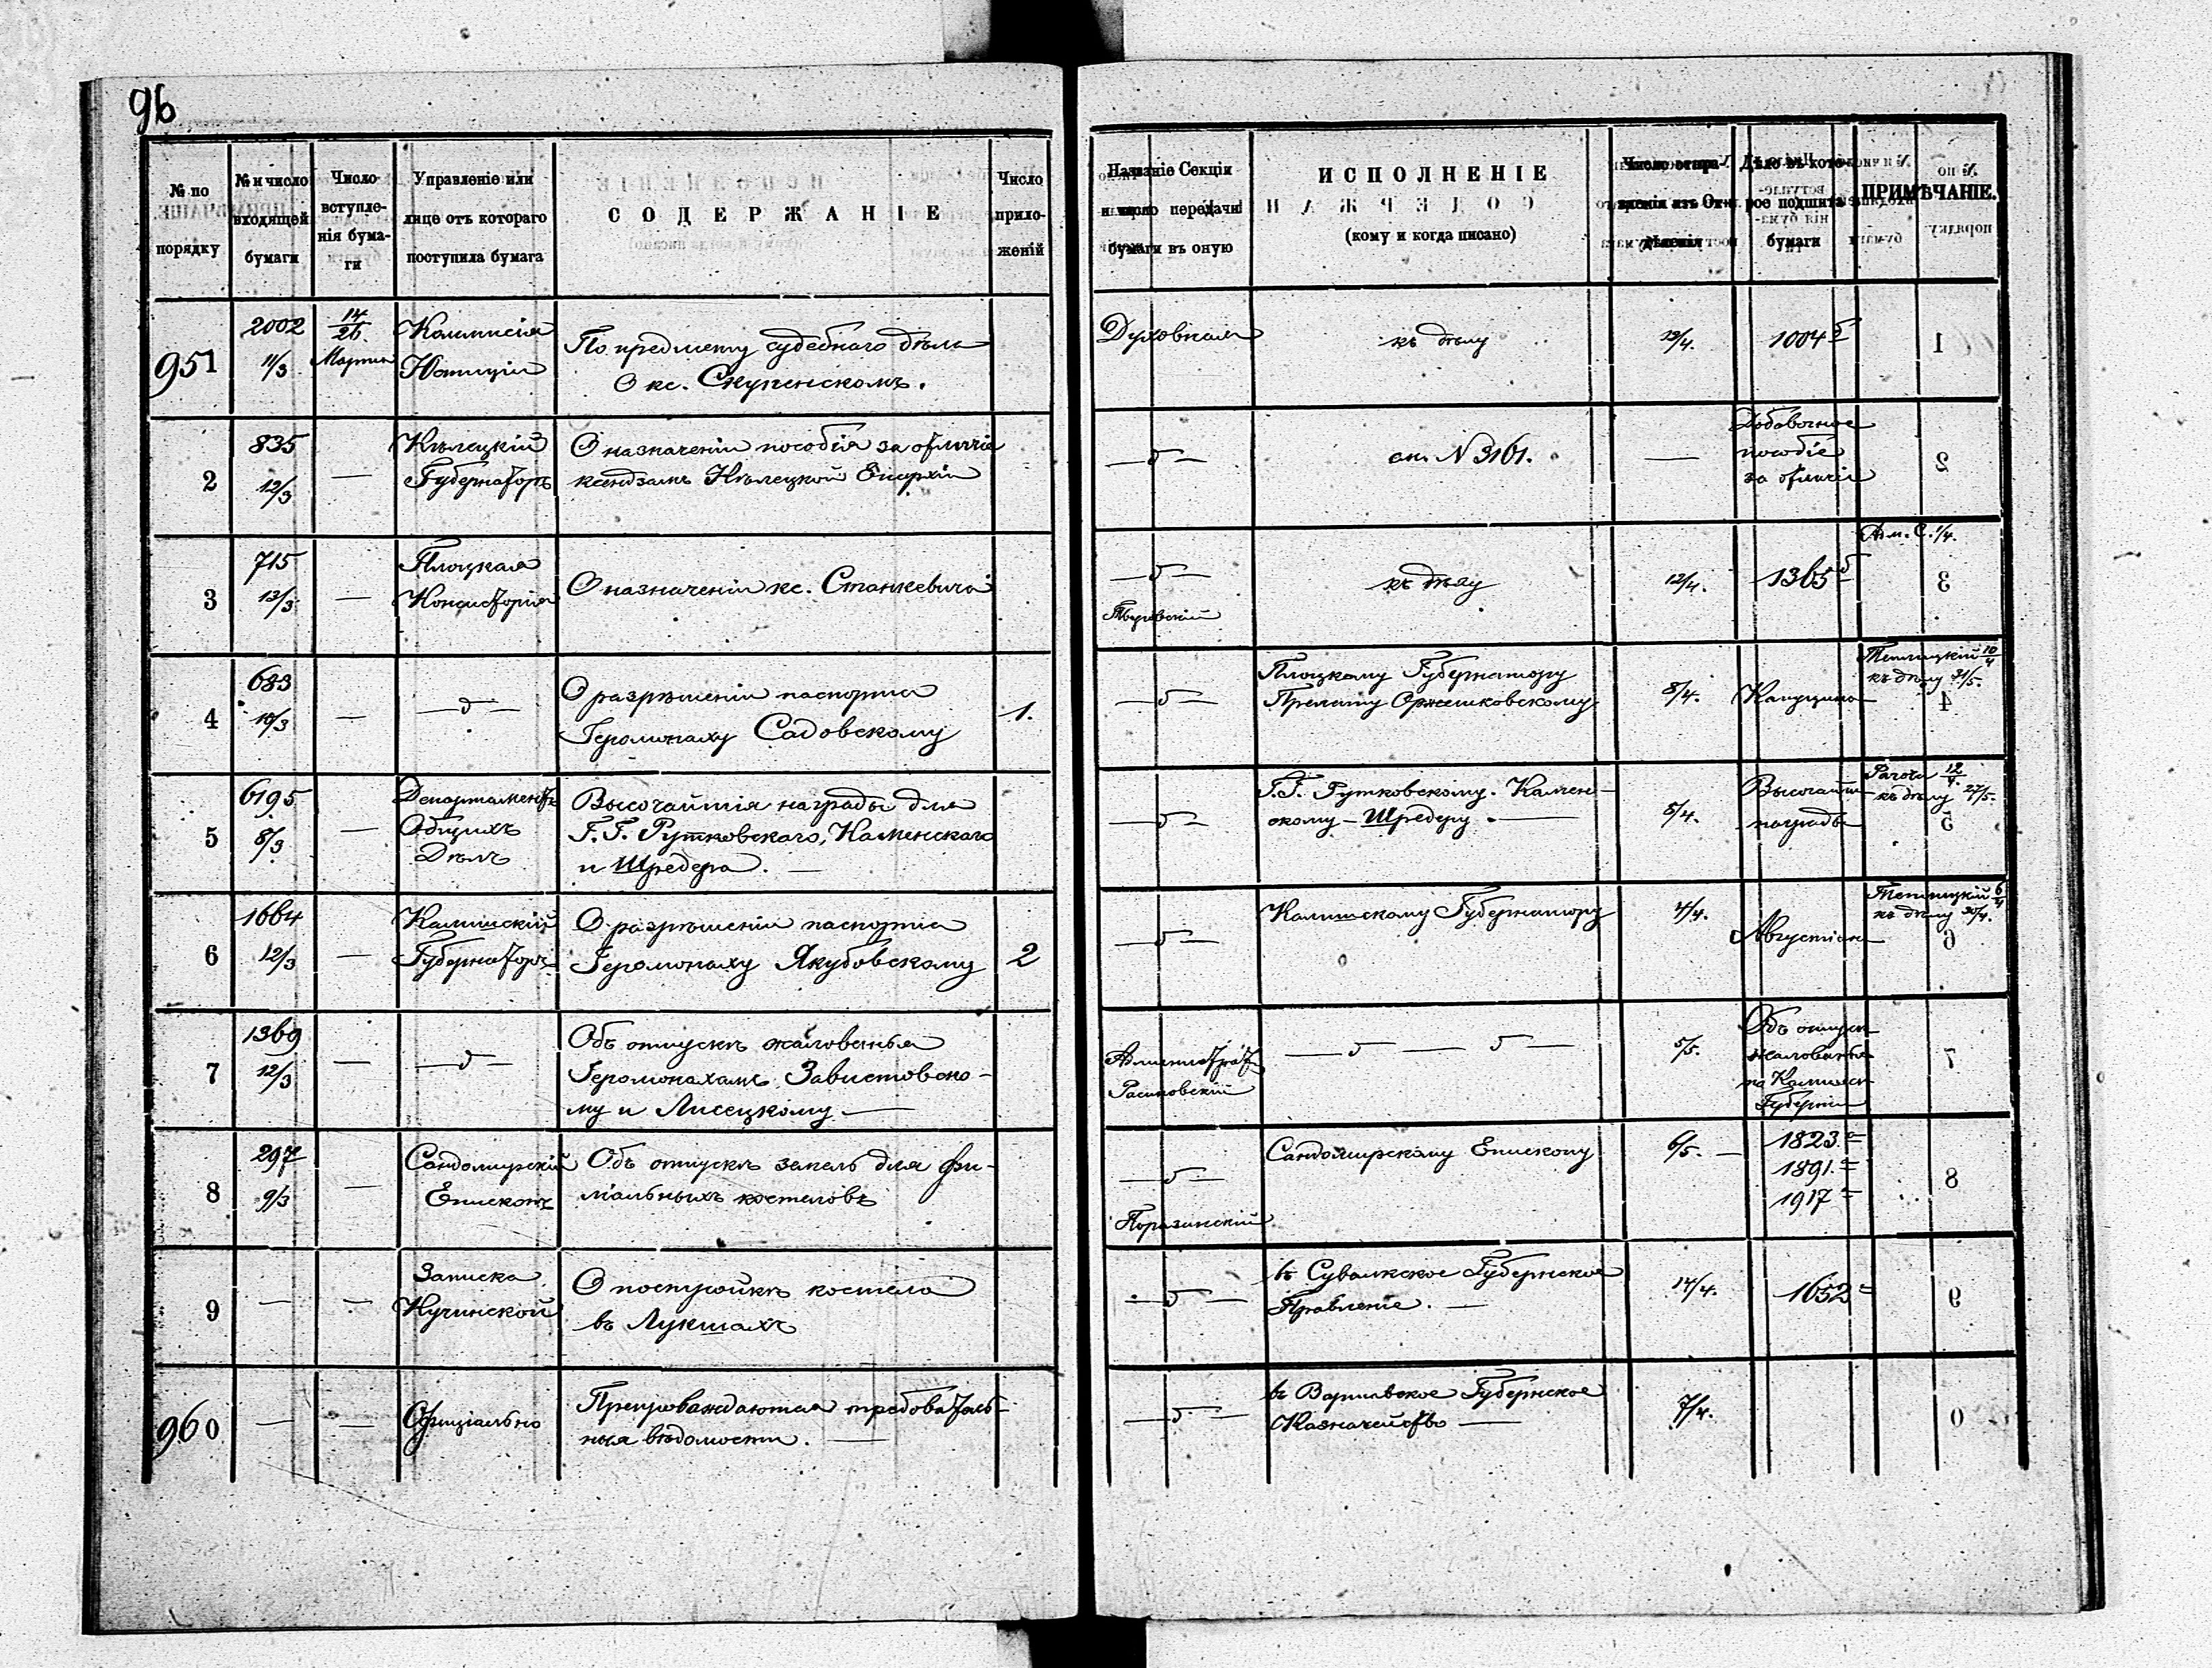 96
№ по порядку
№ и число входящей бумаги
Число вступле-нія бума-ги
Управленіе или лице отъ котораго поступила бумага
СОДЕРЖАНІЕ
Число прило-женій
Названіе Секціи и число передачи бумаги въ оную
ИСПОЛНЕНІЕ
(кому и когда писано)
Число отпра-вленія изъ От-дѣленія
Дѣло въ кото-рое подшита бумаги
ПРИМѢЧАНІЕ.
951
2002
11/3
14/26 Марта
Коммисія
Юстиціи
По предмету судебнаго дѣла
О кс. Скупенскомъ.
Духовная
къ дѣлу
12/4.
1004 б
1
2
835
12/3
—
Кѣлецкій
Губернаторъ
О назначеніи пособія за отличіе
ксендзамъ Кѣлецкой Епархіи
— д —
сп. № 3161.
—
Добавочное
пособіе
за отличіе
2
3
715
13/3
—
Плоцкая
Консисторія
О назначеніи кс. Станкевича
— д —
къ дѣлу
12/4.
1365 б
1/4.
3
4
683
10/3
—
— д —
О разрѣшеніи паспорта
Іеромонаху Садовскому
1.
— д —
Плоцкому Губернатору
Прелату Оржешковскому
8/4.
Капуцина
10/4
къ дѣлу 21/5.
4
5
6195
8/3
—
Департаментъ
Общихъ
Дѣлъ
Высочайшія награды для
Г.Г. Рутковскаго, Каменскаго
и Шредера. —
— д —
Г.Г. Рутковскому. Камен-
скому – Шредеру. —
8/4.
Высочайш
награды
12/4.
къ дѣлу 27/5.
5
6
1664
12/3
—
Калишскій
Губернаторъ
О разрѣшеніи паспорта
Іеромонаху Якубовскому
2
— д —
Калишскому Губернатору
4/4.
Августіан
6/4
къ дѣлу 30/4.
6
7
1369
12/3
—
— д —
Объ отпускѣ жалованья
Іеромонахамъ Завистовско-
му и Лисецкому —
— д — д —
5/5.
Объ отпуск
жалованья
по Калишск
Губерніи
7
8
297
9/3
—
Сандомирскій
Епископъ
Объ отпускѣ земель для фи-
ліальныхъ костеловъ
— д —
Сандомирскому Епископу
6/5. —
1823
1891
1917
8
9
—
—
Записка
Кучинской
О постройкѣ костела
въ Лукшахъ
— д —
въ Сувалкское Губернское
Правленіе. —
14/4.
1652
9
960
—
—
Офиціально
Препровождаются требователь-
ныя вѣдомости. —
— д —
въ Варшавское Губернское
Казначейство —
7/4.
0